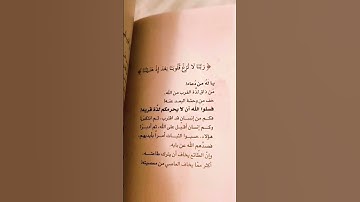 ﴿ رَبَّنَا لَا تُزِغْ قُلُوبَنَا بَعْدَ إِذْ هَدَيْتَنَا ﴾
يا لَهُ من دعاء!
مَن ذاق لذّة القرب من الله،
خاف من وحشة البعد عنه!
فسلوا الله أن لا يحرمكم لذّة قربه!
فكم من إنسان قد اقترب، ثم انتكس!
وكم إنسان أقبل على الله، ثم أدبر!
هؤلاء حسبوا الثبات أمراً بأيديهم،
فصدّهم الله عن بابه.
وإنّ الطائع يخاف أن يترك طاعته،
أكثر ممّا يخاف العاصي من معصيته!